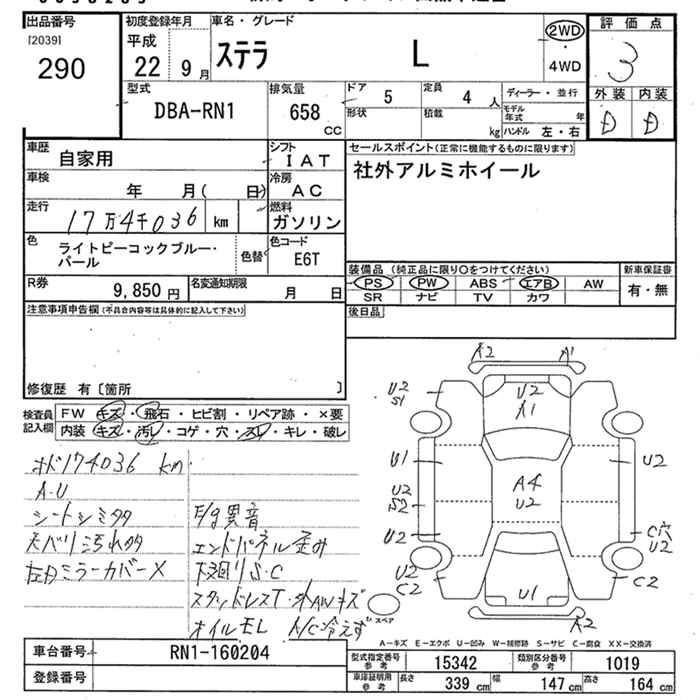 出品番号
[2039]
290
初度登録年月
平成
22 9月
車名・グレード
ステラ L
2WD
・
4WD
評価点
3
外装 内装
D D
型式
DBA-RN1
排気量
658
cc
ドア 5
定員 4 人
形状
積載 kg
ディーラー・並行
モデル年式 年
ハンドル 左・右
車歴
自家用
シフト
I A T
車検
年 月( 日)
冷房
A C
走行
17万4千036 km
燃料
ガソリン
色
ライトピーコックブルー・
パール
色替
色コード
E6T
R券
9,850 円
名変通知期限
月 日
セールスポイント(正常に機能するものに限ります)
社外アルミホイール
装備品 (純正品に限り○をつけてください)
PS PW ABS エアB AW
SR ナビ TV カワ
新車保証書
有・無
後日品
注意事項申告欄(不具合内容等は具体的に記入して下さい)
修復歴 有 [箇所 ]
検査員
記入欄
FW キズ・飛石・ヒビ割・リペア跡・×要
内装 キズ・汚レ・コゲ・穴・スレ・キレ・破レ
オド174036 km
A-U
シートシミタタ
天バリ汚れタタ
左ドミラーカバーX
E/g異音
エンドパネル歪み
下廻りS・C
スタッドレスT・外AWキズ
オイルモレ A/C冷えず
A2 A1
U2
S1
U2
A1
U1
U2
U2
S2
A4
U2
U2
C穴
U2
U2
C2
C2
U1
A2
スペア
A-キズ E-エクボ U-凹み W-補修跡 S-サビ C-腐食 XX-交換済
車台番号
RN1-160204
登録番号
型式指定番号
参考
15342
類別区分番号
参考
1019
車庫証明用
参考
長さ 339 cm
幅 147 cm
高さ 164 cm